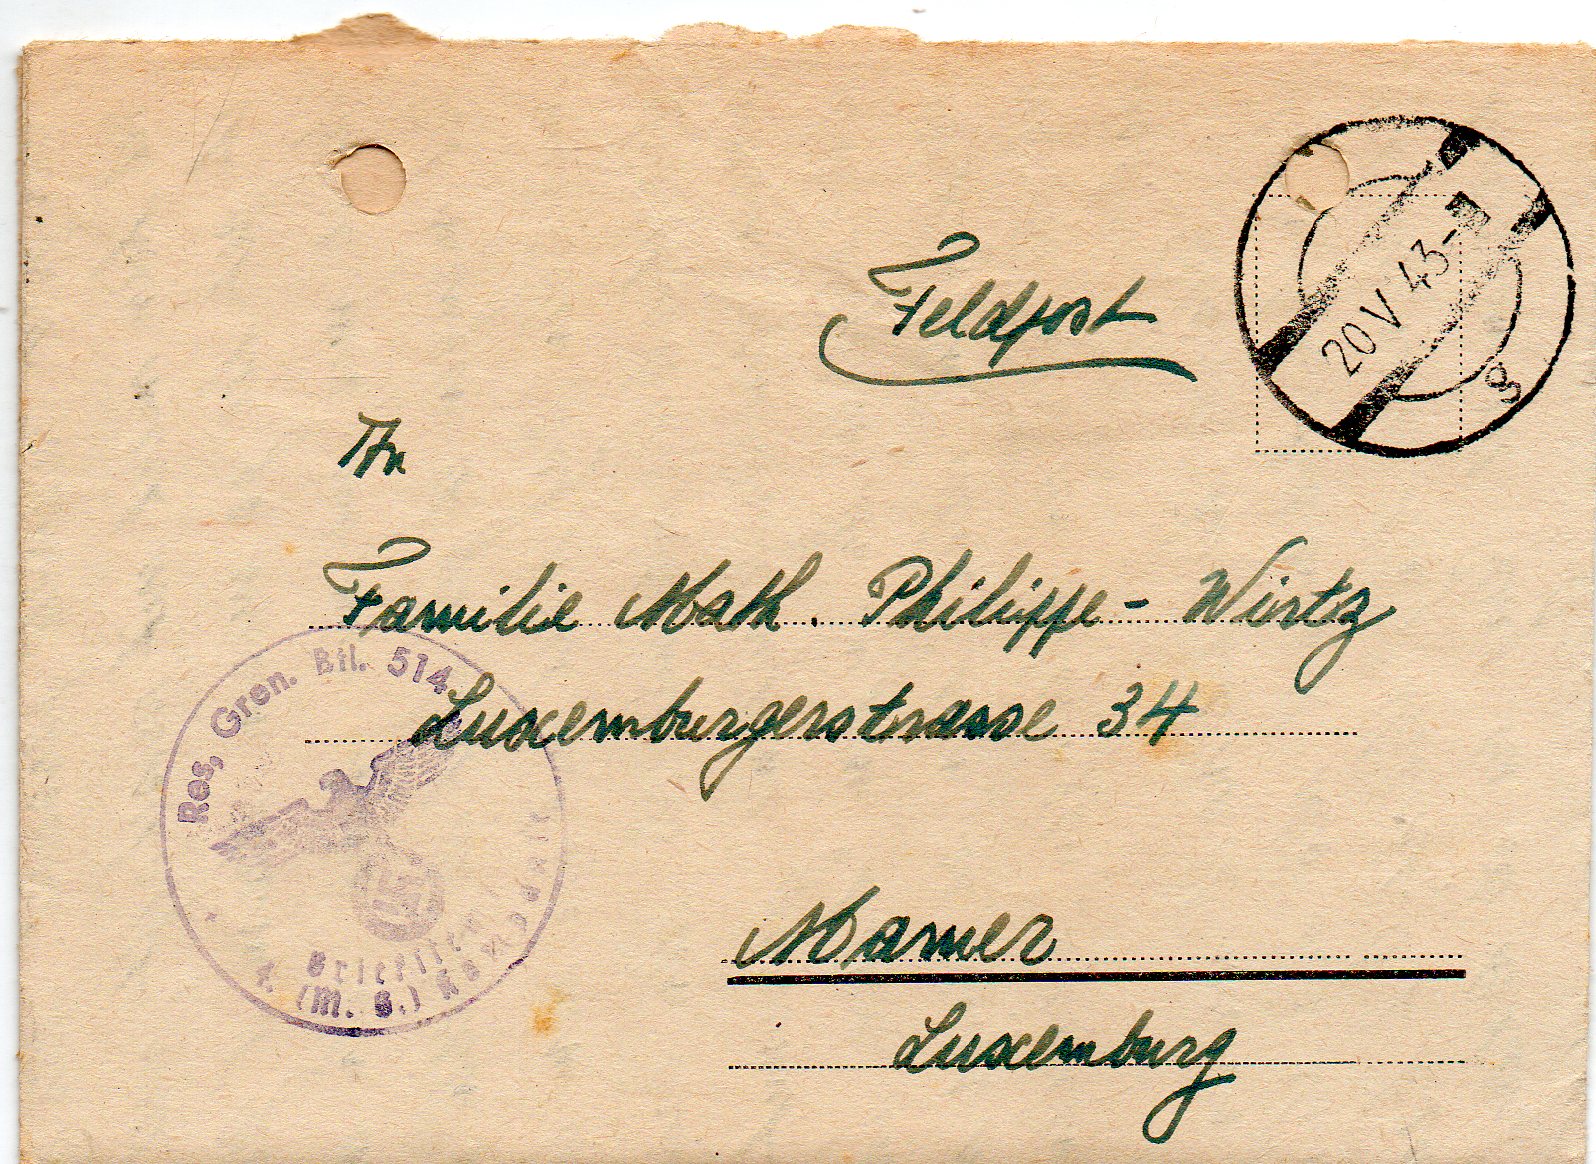 Feldpost
20 V 43-
g
An
Familie Math. Philippe - Wirtz
Luxemburgerstrasse 34
Mamer
Luxemburg
Res, Gren. Btl. 514
Briefstempel
(M. G.) Kompanie